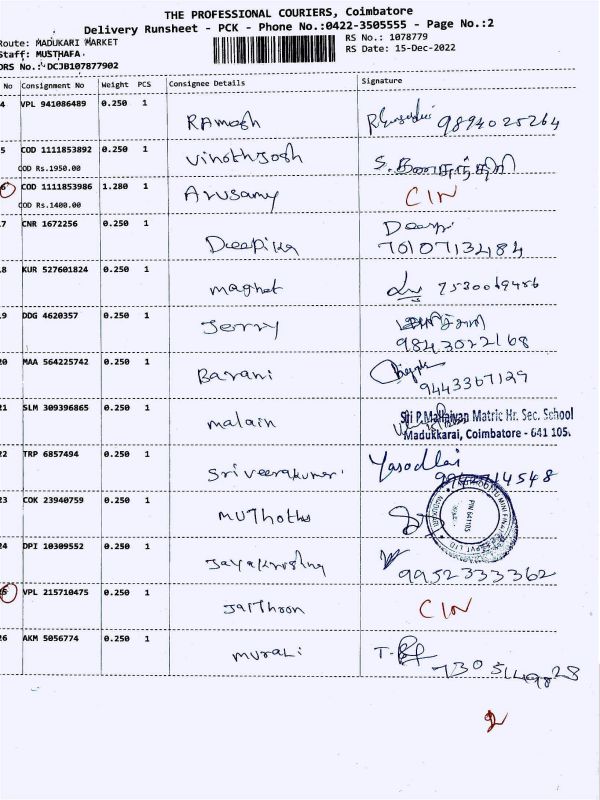 THE PROFESSIONAL COURIERS, Coimbatore
Delivery Runsheet - PCK - Phone No.:0422-3505555 - Page No.:2
Route: MADUKARI MARKET
RS No.: 1078779
Staff: MUSTHAFA
RS Date: 15-Dec-2022
DRS No.: DCJB107877902
No Consignment No Weight PCS Consignee Details Signature
4 VPL 941086489 0.250 1 Ramesh 9894025264
5 COD 1111853892 0.250 1 Vinothjosh
COD Rs.1950.00
6 COD 1111853986 1.280 1 Arusamy CIN
COD Rs.1400.00
7 CNR 1672256 0.250 1 Deepika
7010713484
8 KUR 527601824 0.250 1 maghet 7530069486
9 DDG 4620357 0.250 1 Jerry
9843022168
20 MAA 564225742 0.250 1 Barani
9443367129
21 SLM 309396865 0.250 1 malain Sri P.Mallaiyan Matric Hr. Sec. School
Madukkarai, Coimbatore - 641 105.
22 TRP 6857494 0.250 1 Sriveerakumar
23 COK 23940759 0.250 1 Muthothu
24 DPI 10309552 0.250 1 Jayakrishna
9952333362
25 VPL 215710475 0.250 1 CIN
26 AKM 5056774 0.250 1 murali
2